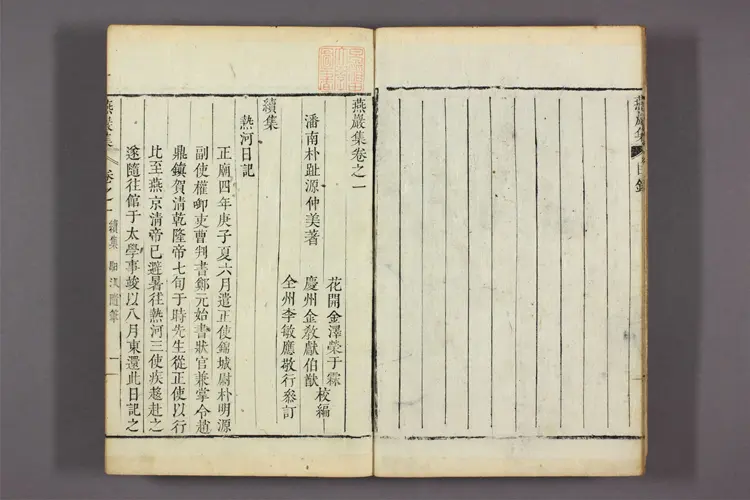 燕巖集
目錄
燕巖集卷之一
潘南朴趾源仲美著
花開金澤榮于霖
慶州金敎獻伯猷
校編
全州李敏應敬行參訂
續集
熱河日記
正廟四年庚子夏六月遣正使錦城尉朴明源
副使權卿吏曹判書鄭元始書狀官兼掌令趙
鼎鎭賀清乾隆帝七旬于時先生從正使以行
比至燕京清帝已避暑往熱河三使疾趨赴之
遂隨往館于太學事竣以八月東還此日記之
燕巖集 卷之一 續集 馹汛隨筆 一